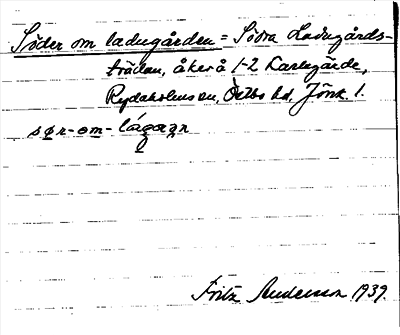 Söder om ladugården = Södra Ladugårds-
trädan, åker å 1-2 Karlsgärde,
Rydaholms sn, Östbo hd, Jönk. l.
sør-om-lágaṇ
Fritz Andersson 1939.